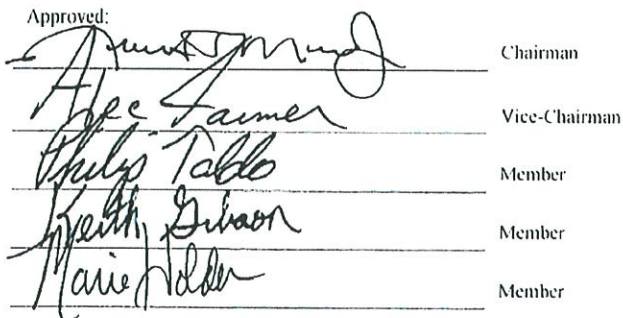 Approved:
Chairman
Alec Farmer Vice-Chairman
Philip Taldo Member
Keith Gibson Member
Marie Holder Member